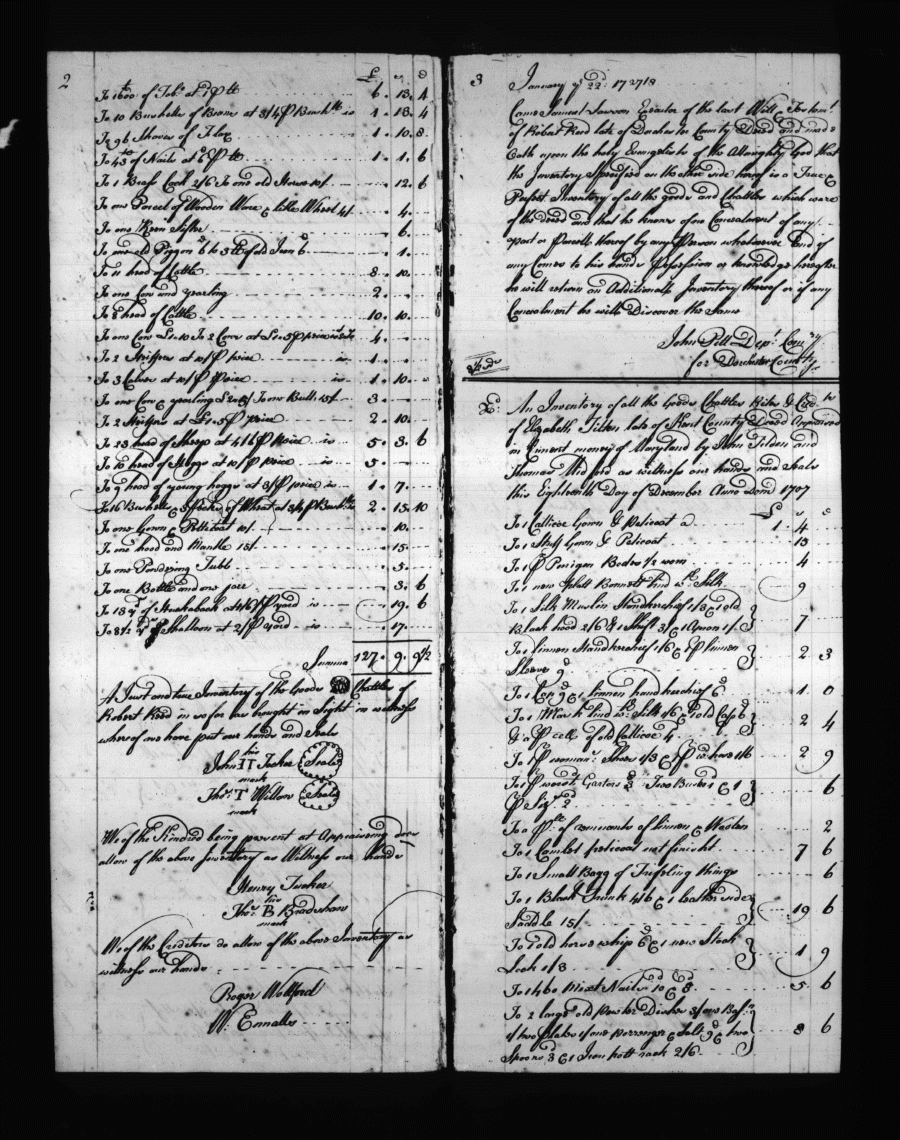 2
£ s d
To 1600 of Tobo at 1 P lb 6 . 13 . 4
To 10 Bushells of Beans at 3/4 P Bushll is 1 . 13 . 4
To 96 Sheaves of Flax 1 . 10 . 8
To 43 lb of Nails at 6d P lb 1 . 1 . 6
To 1 Brass Cock 2/6 To one old Horse 10/ . 12 . 6
To one Parcel of Wooden Ware & little Wheel 4/ . 4 .
To one Sifter . 6 .
To one old Piggon 6d to 3 lb of old Iron 6d . 1 .
To 11 head of Cattle 8 . 10 .
To one Cow and yearling 2 .
To 8 head of Cattle 10 . 10
To one Cow £1=10 To 2 Cows at £1=5 P price is To 4 .
To 2 Heiffers at 10/ P price is 1 .
To 3 Calves at 10/ P Price is 1 . 10
To one Cow & yearling To one Bull 15/ 3 .
To 2 Heiffers at £1=5 P price 2 . 10
To 23 head of Sheep at 4/6 P Price is 5 . 3 . 6
To 10 head of Hoggs at 10/ P price is 5 .
To 9 head of young hoggs at 3/ P price is 1 . 7 .
To 16 Bushells 3 Pecks of Wheat at 3/4 P Bushll is 2 . 15 . 10
To one Gown & Petticoat 10/ . 10 .
To one hood and Mantle 15/ . 15 .
To one Powdering Tubb . 5 .
To one Bottle and one jarr . 3 . 6
To 13 yd of Huckaback at 1/6 P yard is 19 . 6
To 8 1/2 yd of Shalloon at 2/ P yard is . 17 .
Summa 127 . 9 . 9 1/2
A Just and true Inventory of the Goods Chattles of
Robert Reed in so far as brought in Sight in witness
whereof we have put our hands and Seals
his
John IT Tucker Seal
mark
Thos T Willow Seal
mark
We of the Kindred being present at Appraising doe
allow of the above Inventory as Witness our hands
Henry Tucker
his
Thos B Bradshaw
mark
We of the Creditors do allow of the above Inventory as
witness our hands
Roger Wolford
W. Ennalls
3 January ye 22d: 1727/8
Came Samuel Executor of the last Will & Testamt
of Robert Reed late of Dorchester County Deced and made
Oath upon the holy Evangelists of the Allmighty God that
the Inventory Specified on the other side hereof is a True &
Perfect Inventory of all the goods and Chattles which were
of the deced and that he knows of no Concealment of any
part or Parcell thereof by any Person whatsoever and if
any Comes to his hands Possession or knowledge hereafter
he will return an Additionall Inventory thereof or if any
Concealment he will Discover the Same
John Pitt Dept Comry
for Dorchester County
Ex: An Inventory of all the Goods Chattles Rites & Credts
of Elizabeth Tilden late of Kent County Deced Appraised
in Current money of Maryland by John Tilden and
Thomas as witness our hands and Seals
this Eighteenth Day of December Anno Dom 1727
£ s d
To 1 Callicoe Gown & Peticoat a 1 . 4
To 1 Stuff Gown & Peticoat 13
To 1 P Bodies 1/2 worn 4
To 1 new Bonnett lind wth Silk 9
To 1 Silk Muslin Handkerchief 1/3 & 1 old
Black hood 2/6 & 1 Shift 3/ & 1 Apron 1/ 7
To 1 linnen Handkerchief 1/6 & 1 P linnen
Sleeves 9d 2 3
To 1 Cap 9d & 1 linnen handkerchief 6d 1 0
To 1 Mask lind wth Silk 1/6 & 1 old Cap 6
& a P cell of old Callicoe 4 2 4
To 1 P womans Shoes 1/3 & 1 P ditto 1/6 2 9
To 1 P worsted Garters 3 Two & 1
P 2d 6
To a Pcl of remnants of linnen & Woolen 2
To 1 Camlet peticoat not finisht 7 6
To 1 Small Bagg of Triffling things 6
To 1 Black Trunk 4/6 & 1 leather side
Saddle 15/ 19 6
To 1 old horse whip 6d & 1 new Stock
Lock 1/3 1 9
To 1460 Mixt Nails 10d & 8d 5 6
To 2 large old Pewter Dishes 3/ one Bason
1/ two Plates 1/ one porrenger & Salt 9d & two
Spoons 3d & 1 Iron pott rack 2/6 8 6